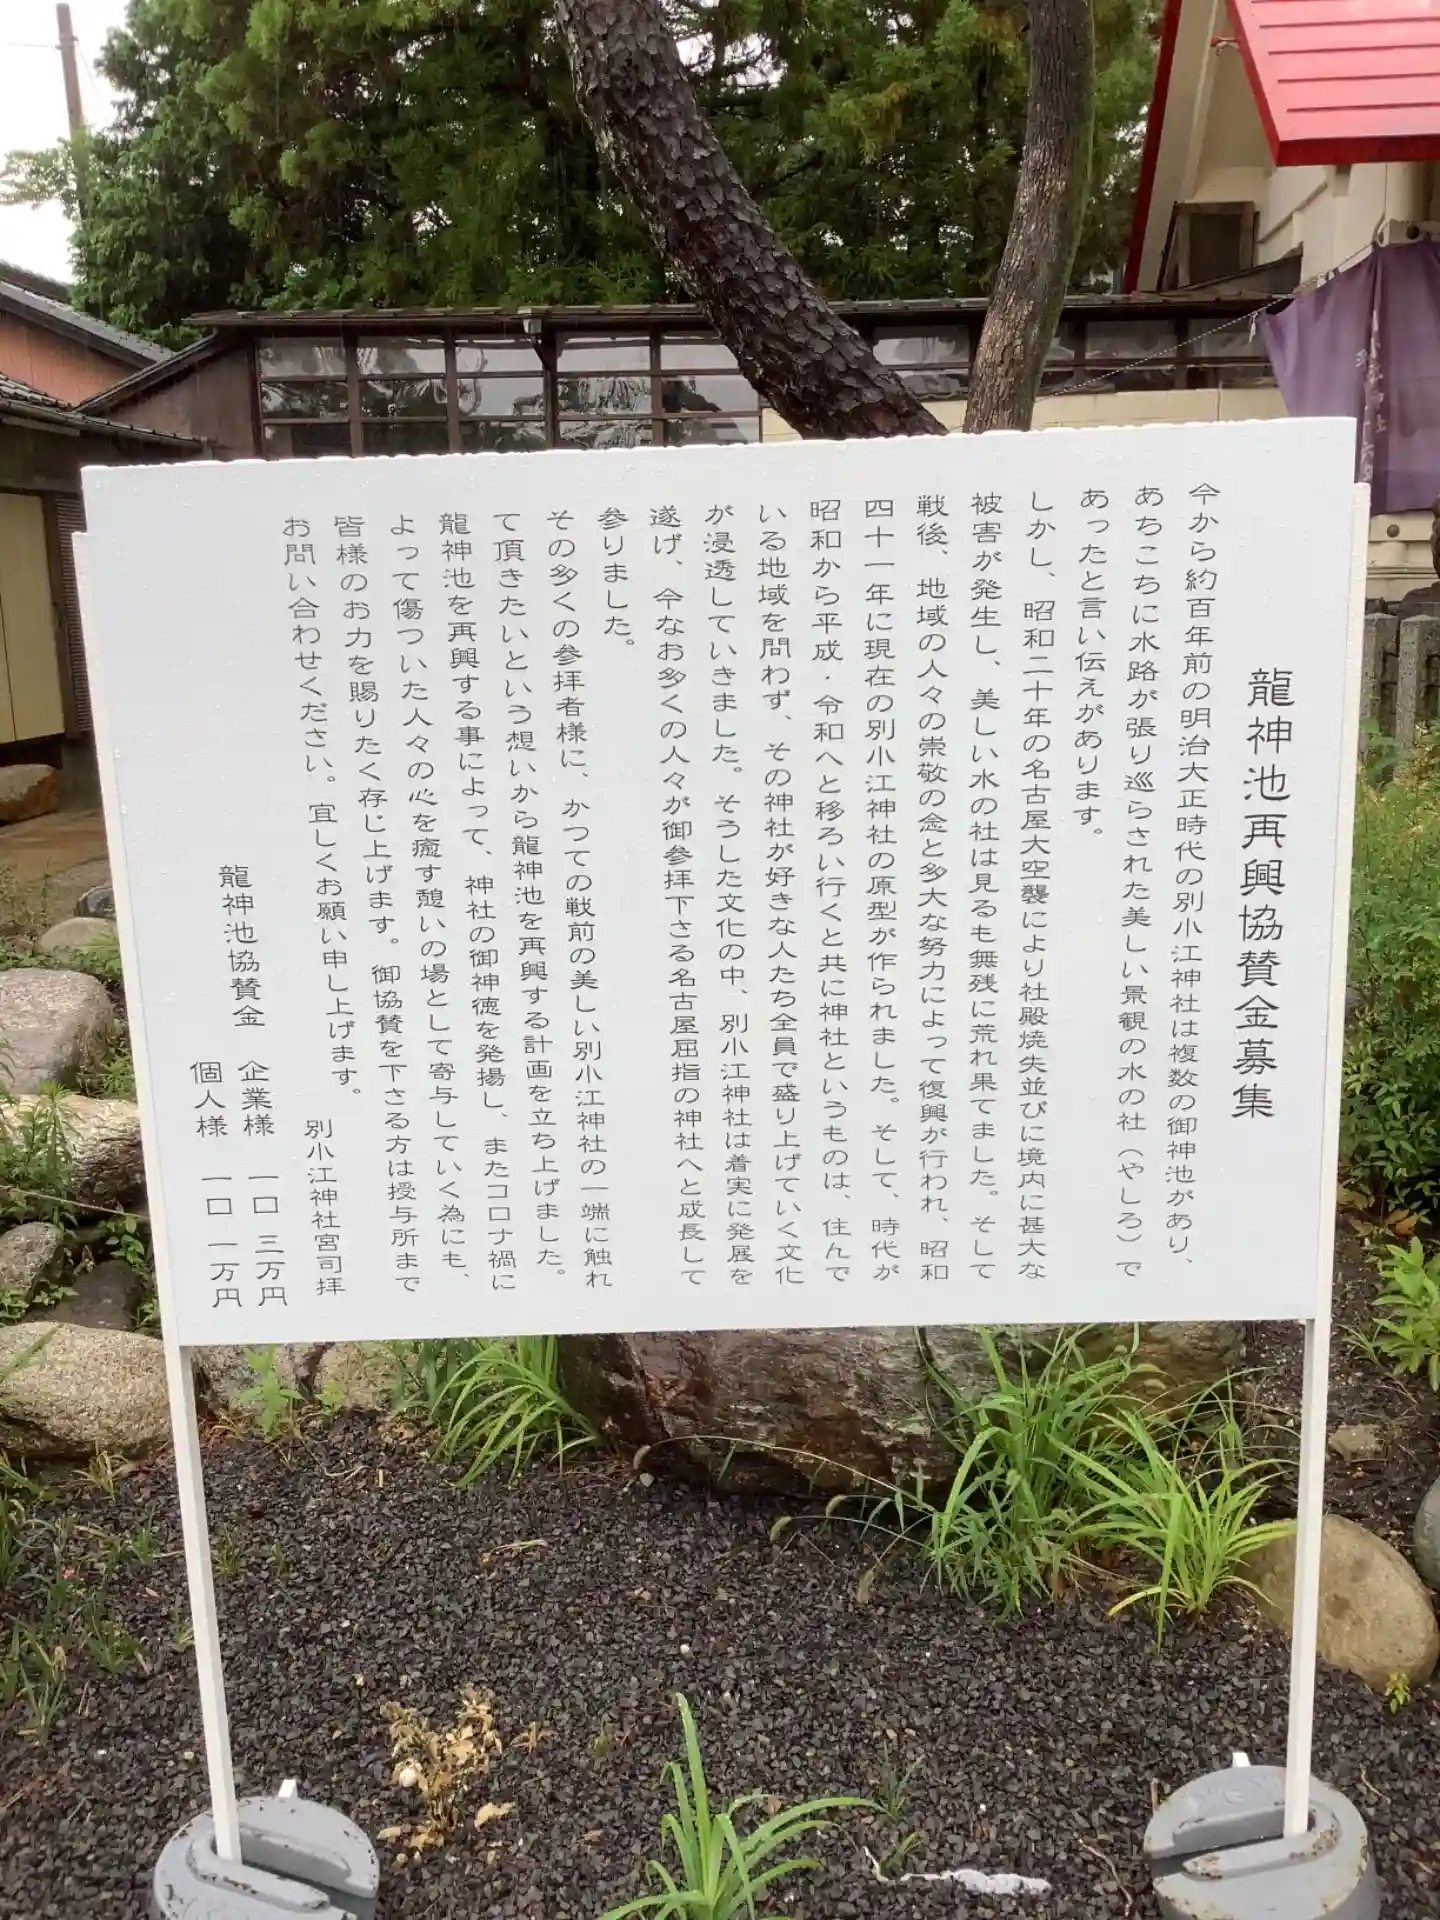 龍神池再興協賛金募集
今から約百年前の明治大正時代の別小江神社は複数の御神池があり、
あちこちに水路が張り巡らされた美しい景観の水の社（やしろ）で
あったと言い伝えがあります。
しかし、昭和二十年の名古屋大空襲により社殿焼失並びに境内に甚大な
被害が発生し、美しい水の社は見るも無残に荒れ果てました。そして
戦後、地域の人々の崇敬の念と多大な努力によって復興が行われ、昭和
四十一年に現在の別小江神社の原型が作られました。そして、時代が
昭和から平成・令和へと移ろい行くと共に神社というものは、住んで
いる地域を問わず、その神社が好きな人たち全員で盛り上げていく文化
が浸透していきました。そうした文化の中、別小江神社は着実に発展を
遂げ、今なお多くの人々が御参拝下さる名古屋屈指の神社へと成長して
参りました。
その多くの参拝者様に、かつての戦前の美しい別小江神社の一端に触れ
て頂きたいという想いから龍神池を再興する計画を立ち上げました。
龍神池を再興する事によって、神社の御神徳を発揚し、またコロナ禍に
よって傷ついた人々の心を癒す憩いの場として寄与していく為にも、
皆様のお力を賜りたく存じ上げます。御協賛を下さる方は授与所まで
お問い合わせください。宜しくお願い申し上げます。
別小江神社宮司拝
龍神池協賛金 企業様 一口 三万円
個人様 一口 一万円